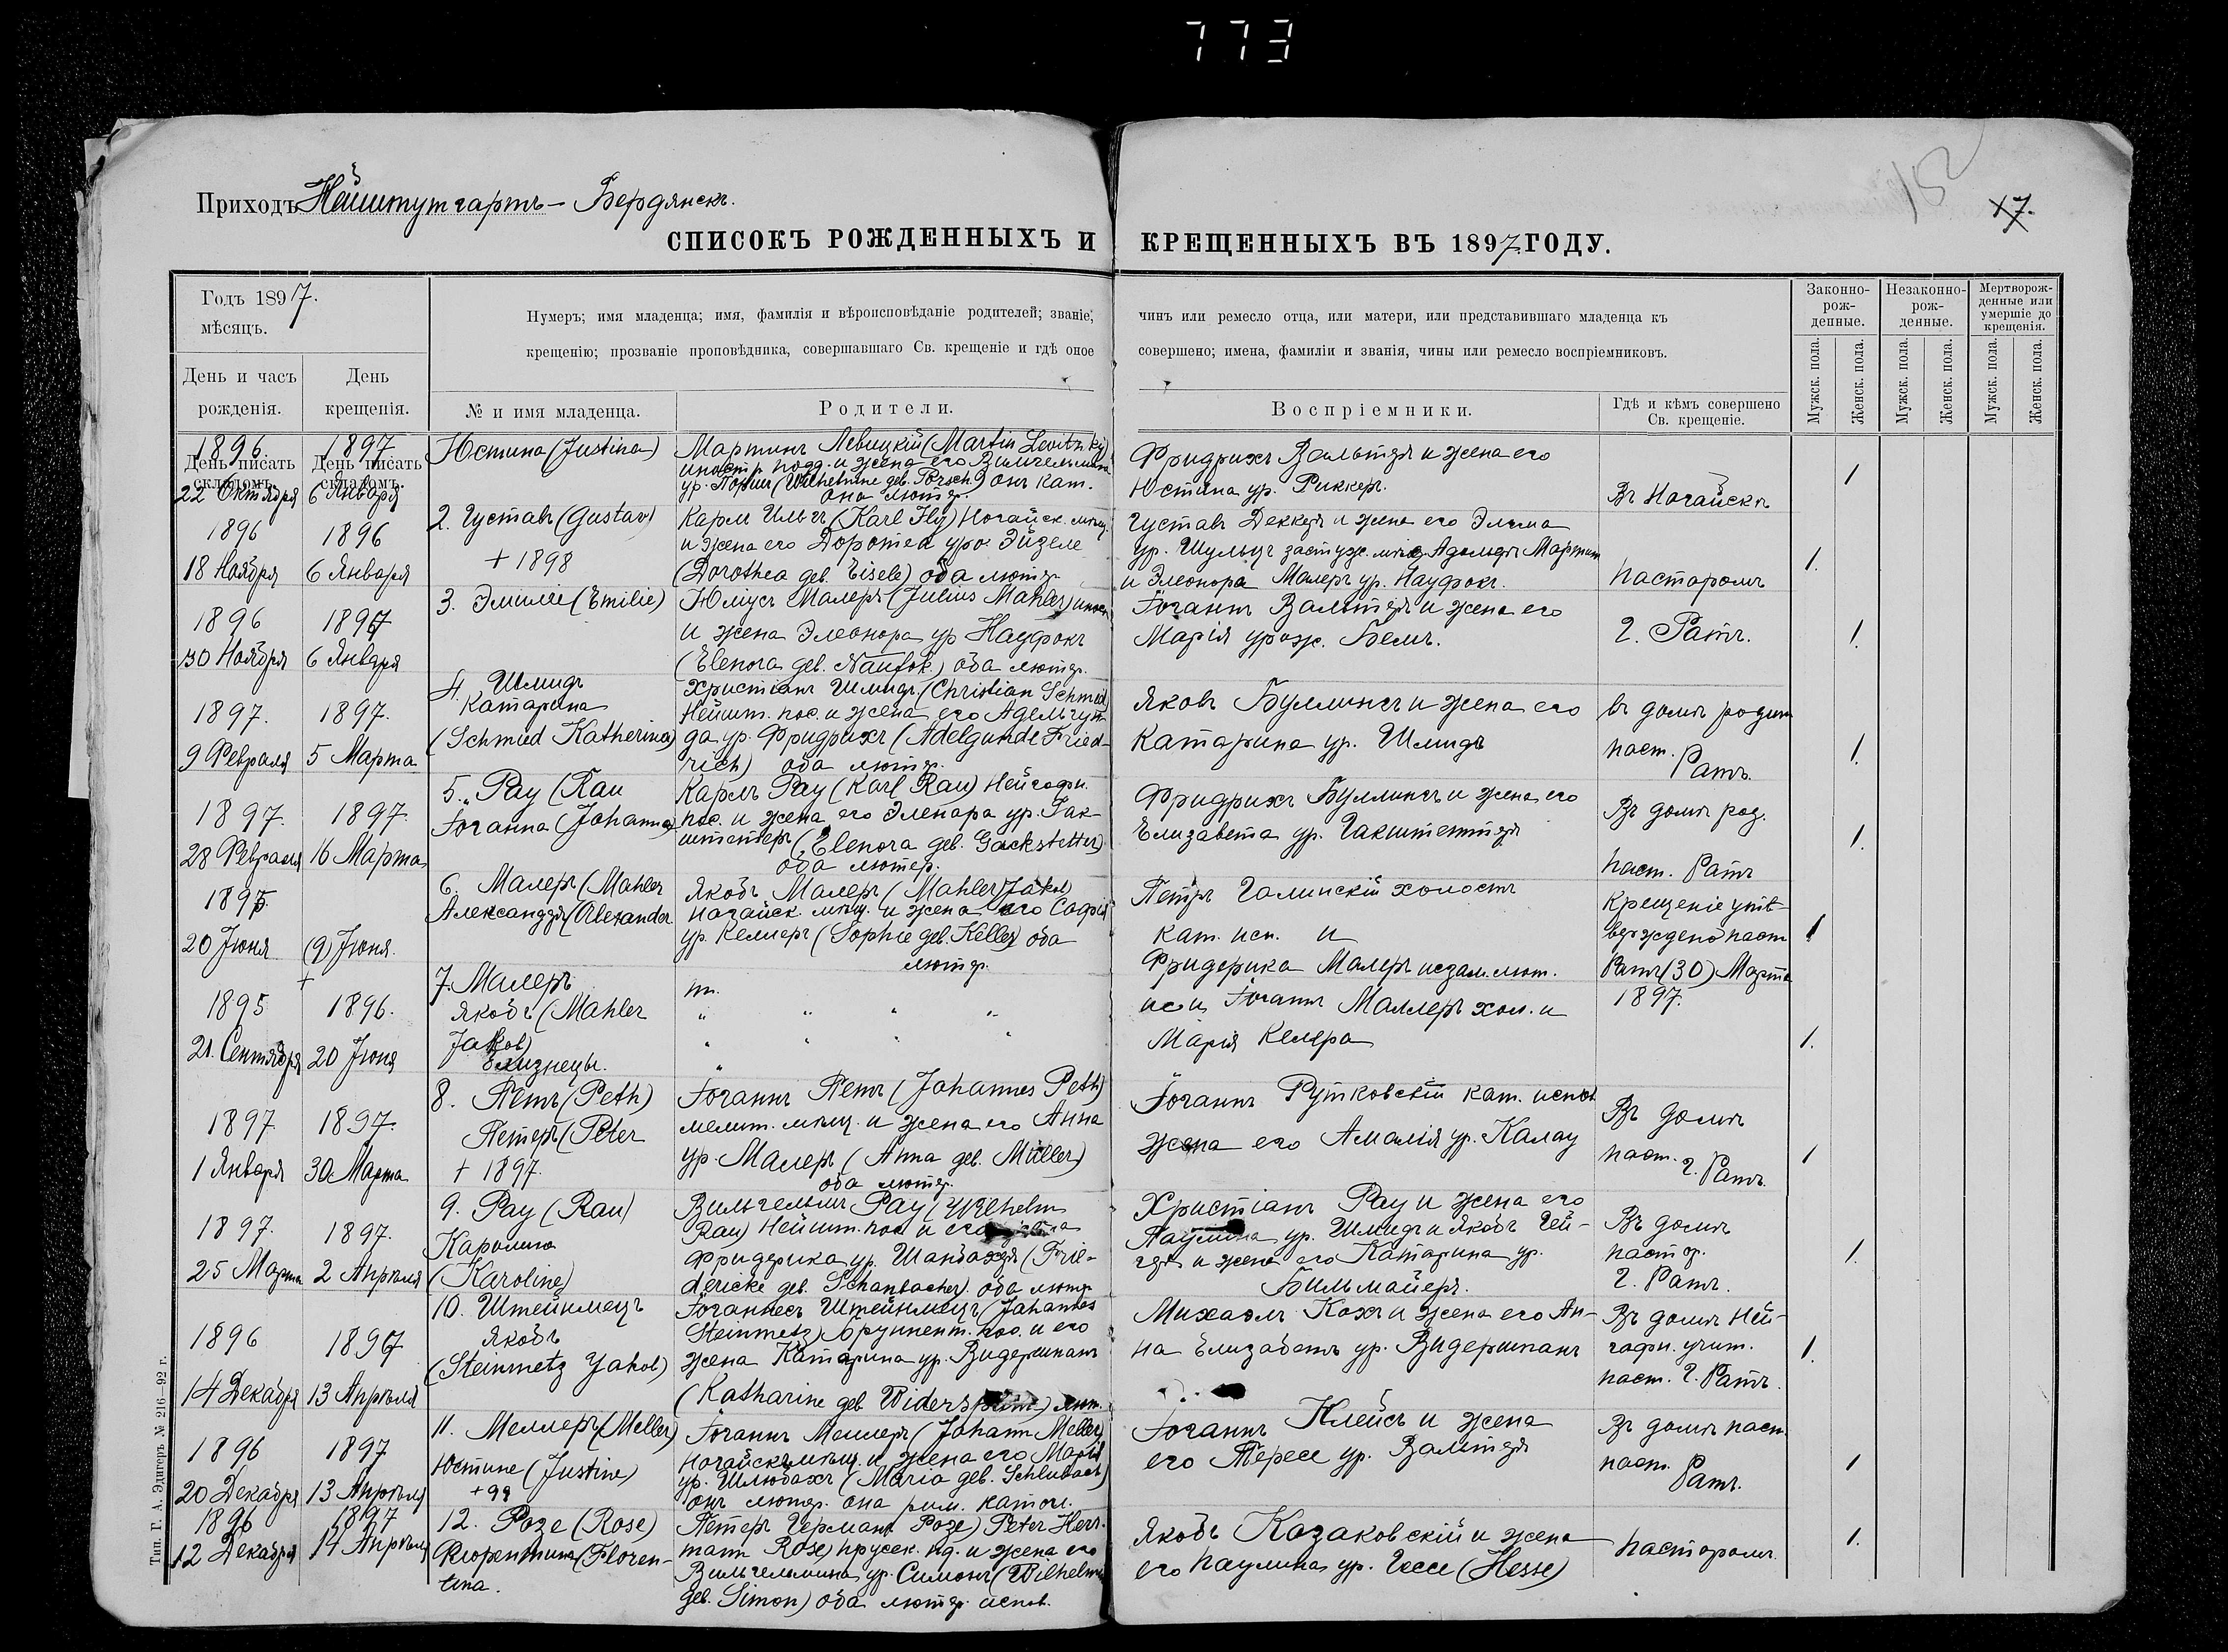 773
152
17.
Приходъ Нейштутгартъ – Бердянскъ.
СПИСОКЪ РОЖДЕННЫХЪ И КРЕЩЕННЫХЪ ВЪ 1897 ГОДУ.
Годъ 1897.
мѣсяцъ.
День и часъ
рожденія.
День
крещенія.
Нумеръ; имя младенца; имя, фамилія и вѣроисповѣданіе родителей; званіе, чинъ или ремесло отца, или матери, или представившаго младенца къ
крещенію; прозваніе проповѣдника, совершавшаго Св. крещеніе и гдѣ оное совершено; имена, фамиліи и званія, чины или ремесло воспріемниковъ.
№ и имя младенца.
Родители.
Воспріемники.
Гдѣ и кѣмъ совершено
Св. крещеніе.
Законно-
рож-
денные.
Незаконно-
рож-
денные.
Мертворож-
денные или
умершіе до
крещенія.
Мужск. пола.
Женск. пола.
Мужск. пола.
Женск. пола.
Мужск. пола.
Женск. пола.
День писать
складомъ.
День писать
складомъ.
1896
22 Октября
1897
6 Января
Юстина (Justina)
Мартинъ Левицкій (Martin Levitzky)
иностр. подд. и жена его Вильгельмина
ур. Поршъ (Wilhelmine geb. Porsch) онъ кат.
она лютер.
Фридрихъ Вальтеръ и жена его
Юстина ур. Риккеръ.
Въ Ногайскѣ
1
1896
18 Ноября
1896
6 Января
2. Густавъ (Gustav)
+ 1898
Карлъ Ильгъ (Karl Ilg) Ногайск. мѣщ.
и жена его Доротеа уро. Эйзеле
(Dorothea geb. Eisele) оба лютер.
Густавъ Деккеръ и жена его Эмма
ур. Шульцъ Адольфъ Мартин
и Элеонора Малеръ ур. Науфокъ.
пасторомъ
1.
1896
30 Ноября
1897
6 Января
3. Эмиліе (Emilie)
Юліусъ Малеръ (Julius Mahler)
и жена Элеонора ур Науфокъ
(Elenora geb. Naufok.) оба лютер.
Іоганнъ Вальтеръ и жена его
Марія урож. Бемъ.
Г. Ратъ.
1.
1897.
9 Февраля
1897.
5 Марта
4. Шмидъ
Катарина
(Schmied Katherina)
Христіанъ Шмидъ (Christian Schmied)
Нейшт. пос. и жена его Адельгун-
да ур. Фридрихъ (Adelgunde Fried-
rich) оба лютер.
Яковъ Буллингъ и жена его
Катарина ур. Шмидъ
въ домѣ родит
паст.
Ратъ.
1.
1897.
28 Февраля
1897.
16 Марта
5. Рау (Rau
Іоганна (Johanna)
Карлъ Рау (Karl Rau) Нейгофн.
пос. и жена его Эленара ур. Гак-
штетеръ (Elenora geb. Gackstetter)
оба лютер.
Фридрихъ Буллингъ и жена его
Елизавета ур. Гакштеттеръ
Въ домѣ род.
паст. Ратъ
1.
1895.
20 Іюня
(9) Іюня.
+
6. Малеръ (Mahler
Александръ (Alexander
Якобъ Малеръ (Mahler Jakob)
Ногайск. мѣщ. и жена его Софія
ур. Келлеръ (Sophie geb. Keller) оба
лютер.
Петръ Галинскій холостъ
кат. исп. и
Фридерика Малеръ незам. лют.
Крещеніе утв-
верждено паст
Ратъ (30) Марта
1897.
1
1895
21. Сентября
1896.
20 Іюня
7. Малеръ
Якобъ (Mahler
Jakob)
близнецы.
т.
„ „ „ „
исп. Іоганнъ Маллеръ хол. и
Марія Келлера
1.
1897
1 Января
1897.
30 Марта
8. Петъ (Peth)
Петеръ (Peter
+ 1897.
Іоганнъ Петъ (Johannes Peth)
мелит. мѣщ. и жена его Анна
ур. Малеръ (Anna geb. Müller)
оба лютер.
Іоганнъ Рутковскій кат. испов
жена его Амалія ур. Калау
Въ домѣ
паст.
Г. Ратъ.
1
1897.
25 Марта
1897.
2 Апрѣля
9. Рау (Rau)
Каролина
(Karoline)
Вильгельмъ Рау (Wilhelm
Rau) Нейшт. пос и его жена
Фридерика ур. Шанбахеръ (Frie-
dericke geb. Schanbacher). оба лютер
Христіанъ Рау и жена его
Паулина ур. Шмидъ и Якобъ Гей-
геръ и жена его Катарина ур.
Бильмайеръ.
Въ домѣ
пастор.
Г. Ратъ.
1.
1896
14 Декабря
1897
13 Апрѣля
10. Штейнмецъ
Якобъ
(Steinmetz Jakob)
Іоганнесъ Штейнмецъ (Johannes
Steinmetz) Грунент. пос. и его
жена Катарина ур. Видершпанъ
(Katharine geb. Widerspann) лют.
Михаэлъ Кохъ и жена его Ан-
на Елизабетъ ур. Видершпанъ
Въ домѣ Ней-
гофн. учит.
паст. Г. Ратъ.
1.
1896
20 Декабря
1897
13 Апрѣля
11. Меллеръ (Meller)
Юстине (Justine)
+99
Іоганнъ Меллеръ (Johann Meller)
Ногайскъ мѣщ. и жена его Марія
ур. Шлюбахъ (Maria geb. Schlubach)
онъ лютер. она рим. катол.
Іоганнъ Клейсъ и жена
его Терезе ур. Валтеръ
Въ домѣ паст.
паст.
Ратъ.
1
1896
12 Декабря
1897
14 Апрѣля
12. Розе (Rose)
Флорентина (Floren-
tina.
Петеръ Германъ Розе) Peter Herr-
mann Rose) прусск. пд. и жена его
Вильгельмина ур. Симонъ (Wilhelmine
geb. Simon) оба лютер. испов.
Якобъ Казаковскій и жена
его Паулина ур. Гессе (Hesse)
Пасторомъ.
1.
Тип. Г. А. Эдигеръ № 216—92 г.